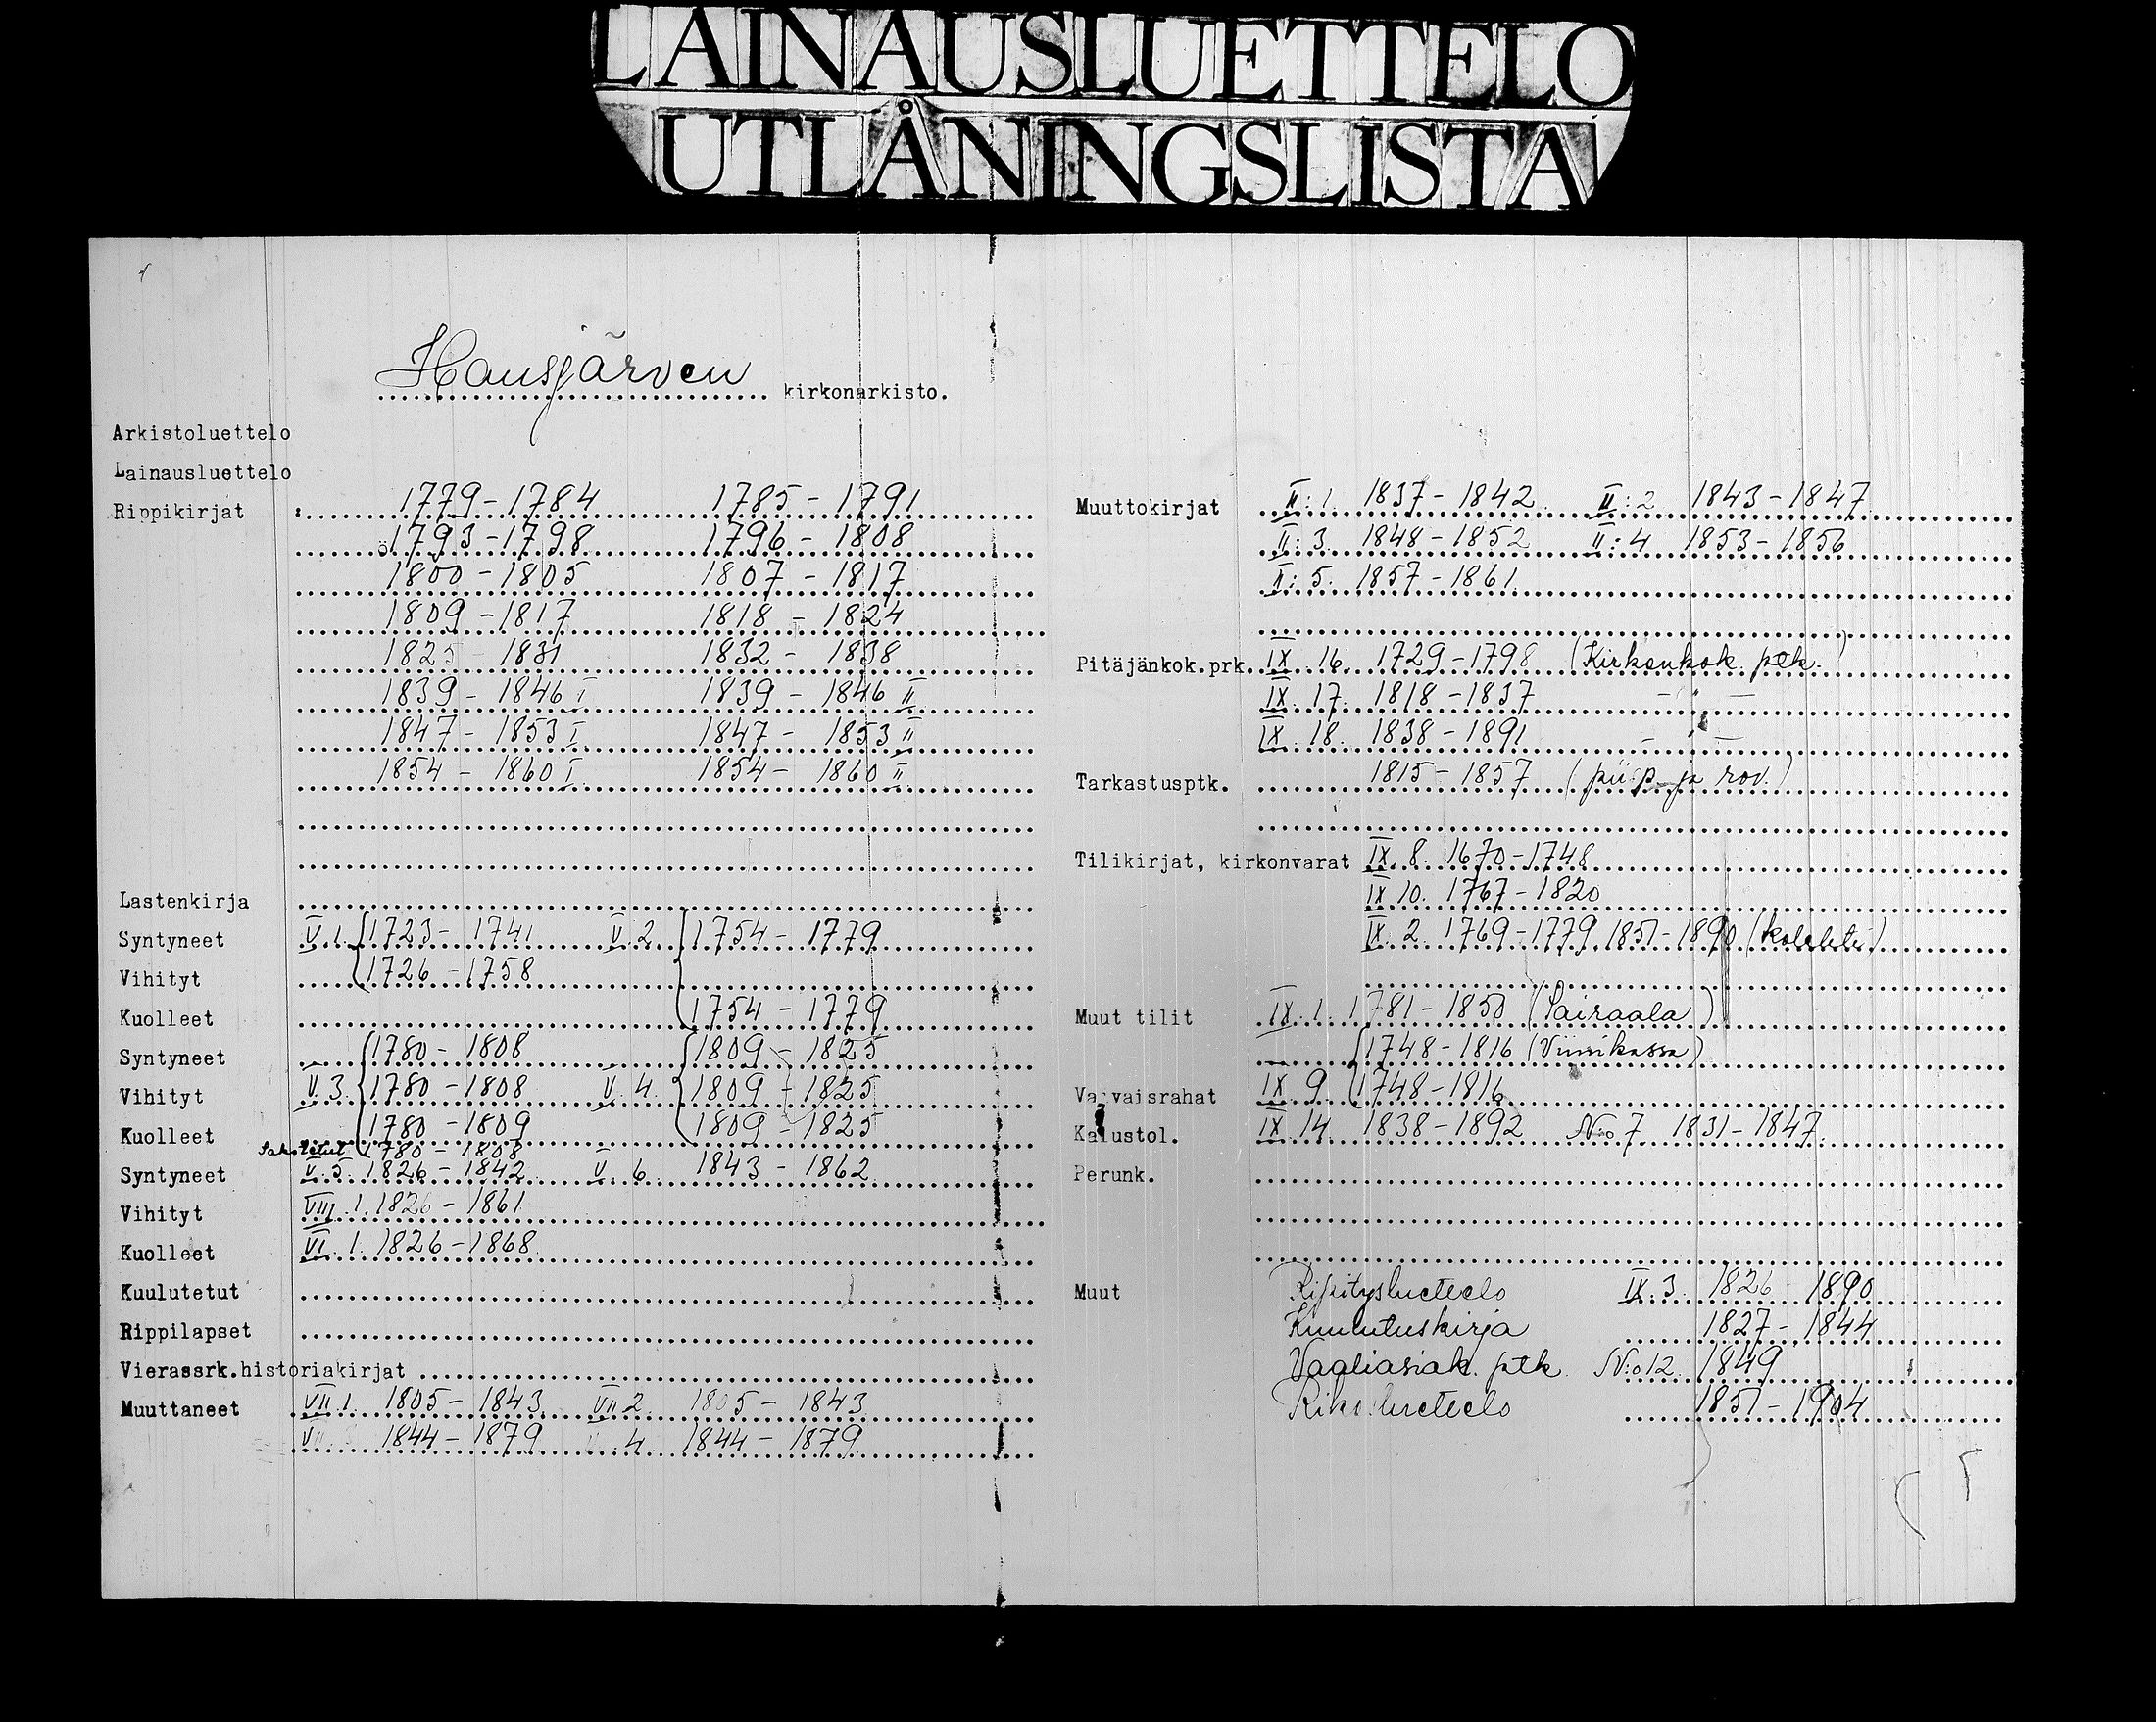 LAINAUSLUETTELO
UTLÅNINGSLISTA
Hausjärven kirkonarkisto.
Arkistoluettelo
Lainausluettelo
Rippikirjat : 1779-1784 1785-1791
1793-1798 1796-1808
1800-1805 1807-1817
1809-1817 1818-1824
1825-1831 1832-1838
1839-1846 I 1839-1846 II
1847-1853 I 1847-1853 II
1854-1860 I 1854-1860 II
Lastenkirja
Syntyneet V.1. 1723-1741 V.2. 1754-1779
Vihityt 1726-1758
Kuolleet 1754-1779
Syntyneet 1780-1808 1809-1825
Vihityt V.3. 1780-1808 V.4. 1809-1825
Kuolleet 1780-1809 1809-1825
Sakotetut 1780-1808
Syntyneet V.5. 1826-1842 V.6. 1843-1862
Vihityt VIII.1. 1826-1861
Kuolleet VI.1. 1826-1868
Kuulutetut
Rippilapset
Vierassrk.historiakirjat
Muuttaneet VII.1. 1805-1843 VII.2. 1805-1843
VII 1844-1879 4. 1844-1879
Muuttokirjat II:1. 1837-1842 II:2 1843-1847
II:3. 1848-1852 II:4 1853-1856
II:5. 1857-1861
Pitäjänkok.prk. IX.16. 1729-1798 (Kirkonkok. ptk.)
IX.17. 1818-1837 -"-
IX.18. 1838-1891 -"-
Tarkastusptk. 1815-1857 (piisp. ja rov.)
Tilikirjat, kirkonvarat IX.8. 1670-1748
IX.10. 1767-1820
IX.2. 1769-1779, 1851-1890 (kolehti)
Muut tilit IX.1. 1781-1850 (Sairaala)
1748-1816 (Viinikassa)
Vaivaisrahat IX.9. 1748-1816
Kalustol. IX.14. 1838-1892 N:o 7. 1831-1847.
Perunk.
Muut Ripitysluettelo IX.3. 1826-1890
Kuulutuskirja 1827-1844
Vaaliasiak. ptk. N:o 12. 1849
Rikosluettelo 1851-1904